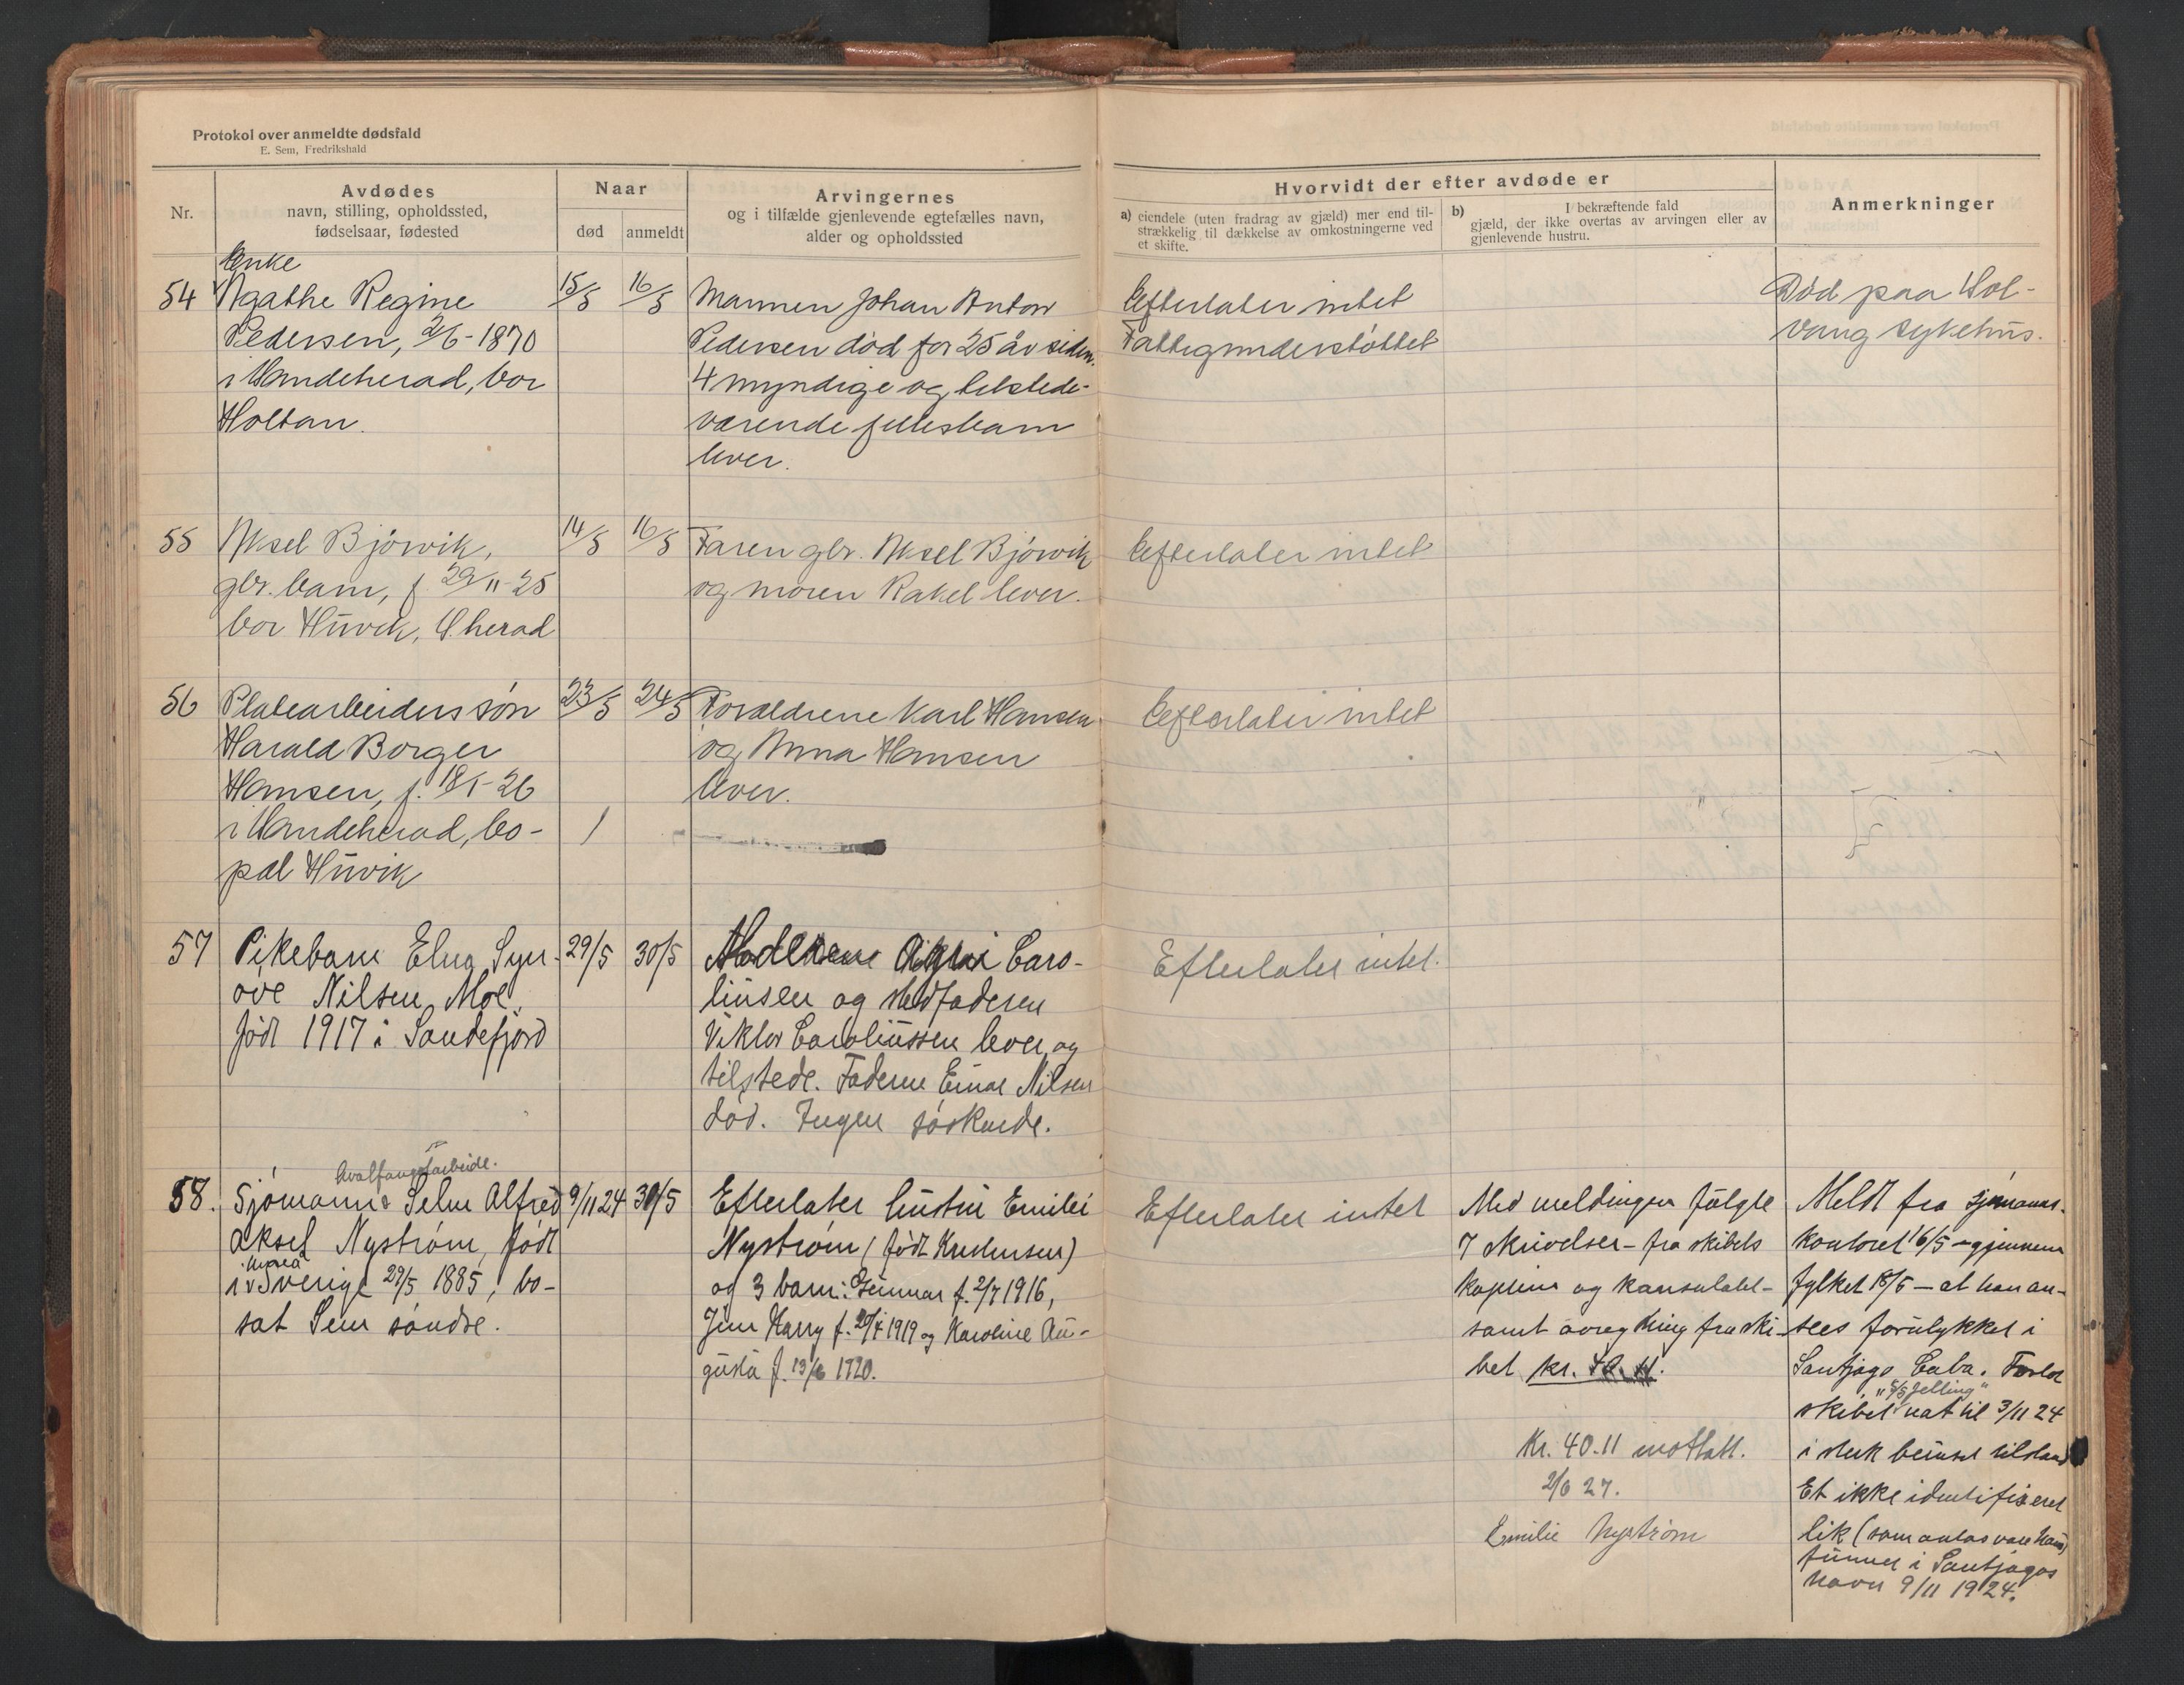 Protokol over anmeldte dødsfald
E. Sem, Fredrikshald
Nr.
Avdødes
navn, stilling, opholdssted,
fødselsaar, fødested
Naar
død
anmeldt
Arvingernes
og i tilfælde gjenlevende egtefælles navn,
alder og opholdssted
Hvorvidt der efter avdøde er
a) eiendele (uten fradrag av gjæld) mer end til-
strækkelig til dækkelse av omkostningerne ved
et skifte.
b) I bekræftende fald
gjæld, der ikke overtas av arvingen eller av
gjenlevende hustru.
Anmerkninger
Enke
54 Agathe Regine
Pedersen, 2/6-1870
i Sandeherad, bor
Holtan.
15/5
16/5
Mannen Johan Anton
Pedersen død for 25 år siden.
4 myndige og tilstede-
værende fellesbarn
lever.
Efterlater intet
Fattigunderstøttet
Død paa Sol-
vang sykehus.
55 Aksel Bjørvik,
gbr. barn, f. 29/11-25
bor Huvik, S.herad
14/5
16/5
Faren gbr. Aksel Bjørvik
og moren Rakel lever.
Efterlater intet
56 Platearbeiders søn
Harald Borger
Hansen, f. 18/1-26
i Sandeherad, bo-
pæl Huvik
23/5
24/5
Forældrene Karl Hansen
og Anna Hansen
lever.
Efterlater intet
57 Pikebarn Elna Syn-
øve Nilsen, Moe,
født 1917 i Sandefjord
29/5
30/5
Moderen Caro-
liusen og stedfaderen
Viktor Caroliussen lever og
tilstede. Faderen Einar Nilsen
død. Ingen søskende.
Efterlater intet.
hvalfangstarbeide.
58. Sjømann Selm Alfred
Aksel Nystrøm, født
i Sverige 29/5 1885, bo-
sat Sem søndre.
9/11 24
30/5
Efterlater hustru Emilie
Nystrøm (født Kristensen)
og 3 barn: Gunnar f. 2/7 1916,
Jim Harry f. 20/4 1919 og Karoline Au-
gusta f. 13/6 1920.
Efterlater intet
Med meldingen fulgte
7 skrivelser - fra skibets
kaptein og konsulatet -
samt avregning fra ski-
bet kr. 40.11.
Kr. 40.11 mottatt.
2/6 27.
Emilie Nystrøm
Meldt fra sjømanns-
kontoret 16/5 - gjennem
fylket 18/5 - at han an-
sees forulykket i
Santjago Cuba. Forlot
"S/S Jelling"
skibet nat til 3/11 24
i sterk beruset tilstand
Et ikke identifiseret
lik (som antas være ham)
funnet i Santjagos
havn 9/11 1924.